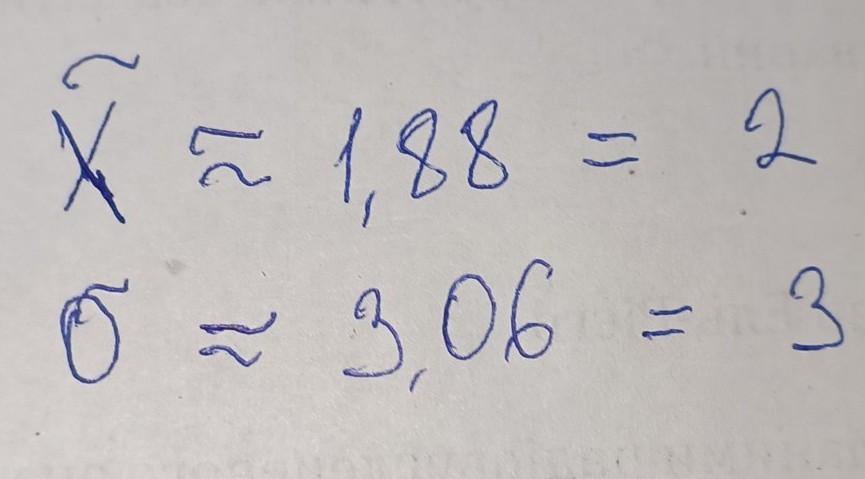 x̃ ≈ 1,88 = 2
σ ≈ 3,06 = 3